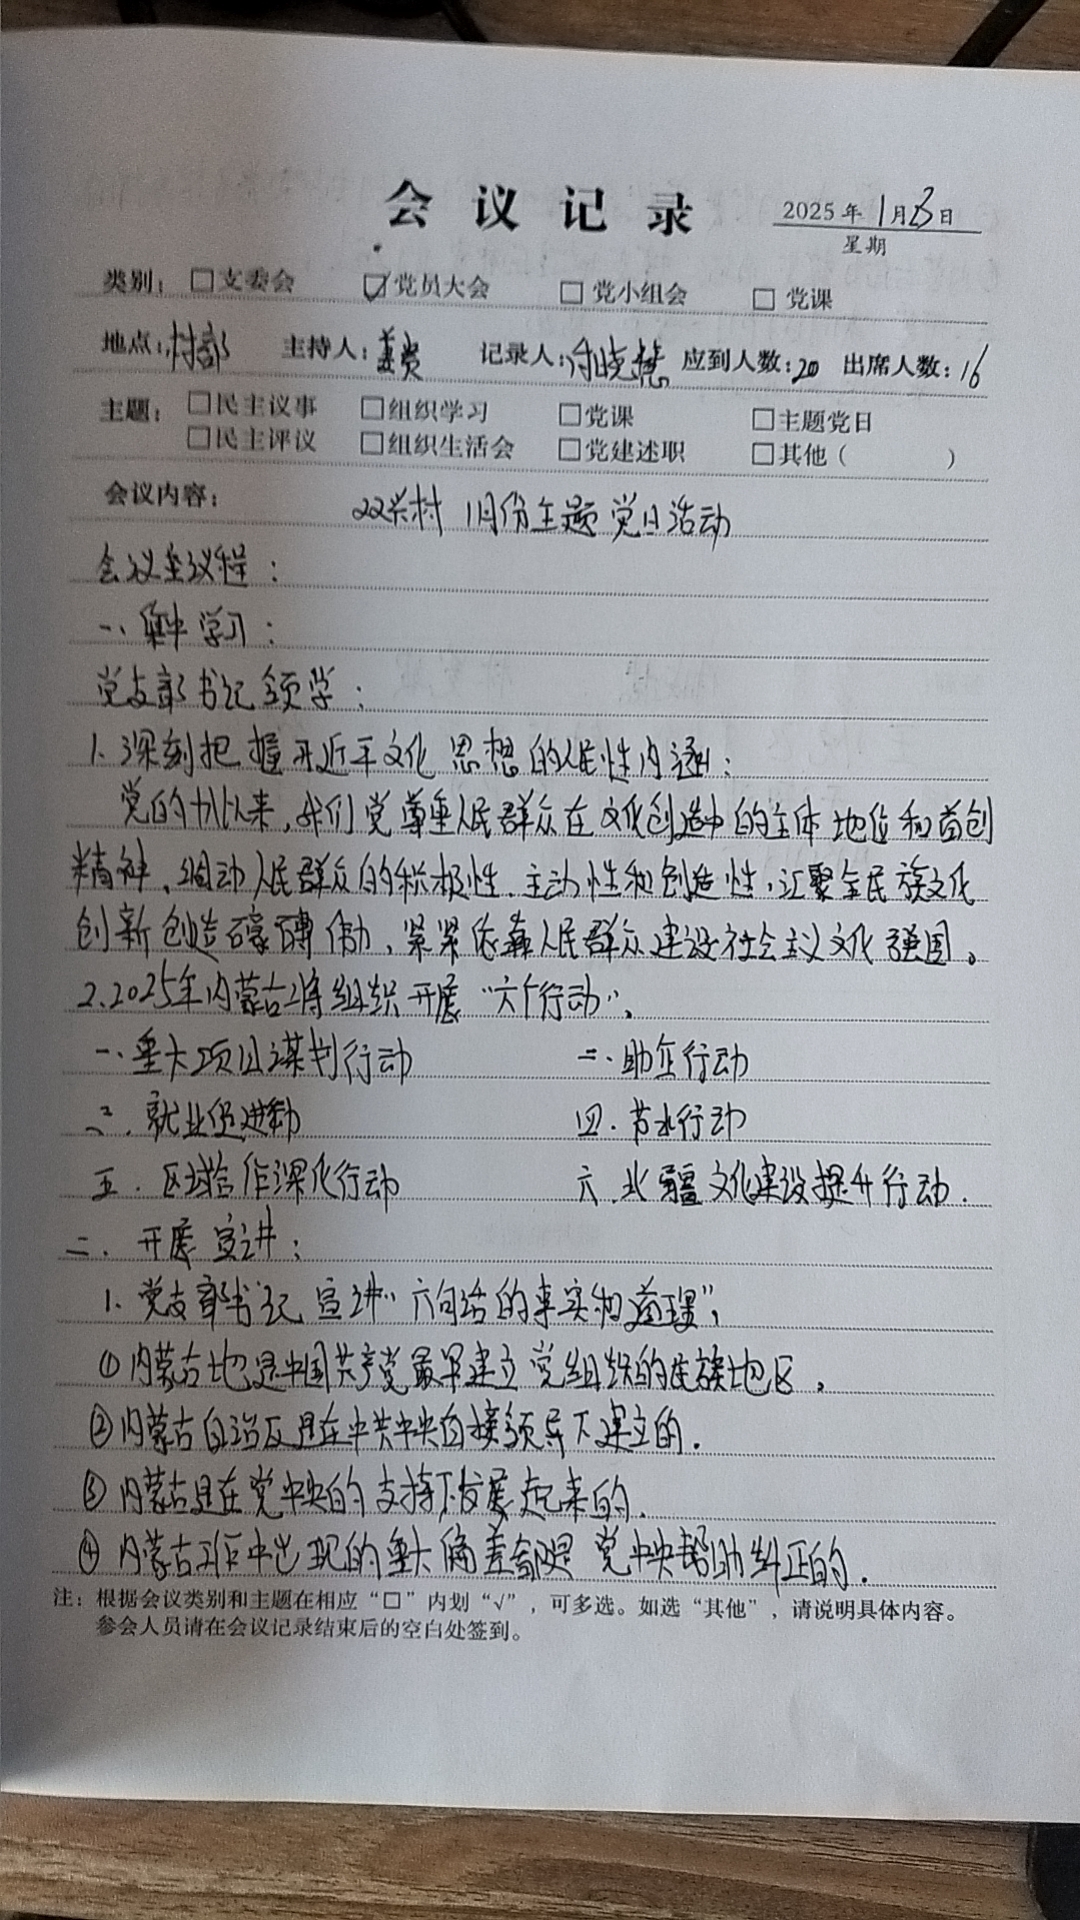 会议记录
2025年1月3日
星期
类别：□支委会 ☑党员大会 □党小组会 □党课
地点：村部 主持人： 记录人：付晓慧 应到人数：20 出席人数：16
主题：□民主议事 □组织学习 □党课 □主题党日
□民主评议 □组织生活会 □党建述职 □其他（ ）
会议内容：双兴村 1月份主题党日活动
会议主议程：
一、集中学习：
党支部书记领学：
1.深刻把握习近平文化思想的人民性内涵：
党的十八以来，我们党尊重人民群众在文化创造中的主体地位和首创
精神、调动人民群众的积极性、主动性和创造性，汇聚全民族文化
创新创造磅礴伟力，紧紧依靠人民群众建设社会主义文化强国。
2.2025年内蒙古将组织开展“六个行动”。
一、重大项目谋划行动 二、助企行动
三、就业促进行动 四、节水行动
五、区域合作深化行动 六、北疆文化建设提升行动．
二、开展宣讲：
1．党支部书记宣讲“六句话的事实和道理”，
①内蒙古地是中国共产党最早建立党组织的民族地区，
②内蒙古自治区是在中共中央直接领导下建立的．
③内蒙古是在党中央的支持下发展起来的．
④内蒙古工作中出现的重大偏差都是党中央帮助纠正的．
注：根据会议类别和主题在相应“□”内划“√”，可多选。如选“其他”，请说明具体内容。
参会人员请在会议记录结束后的空白处签到。